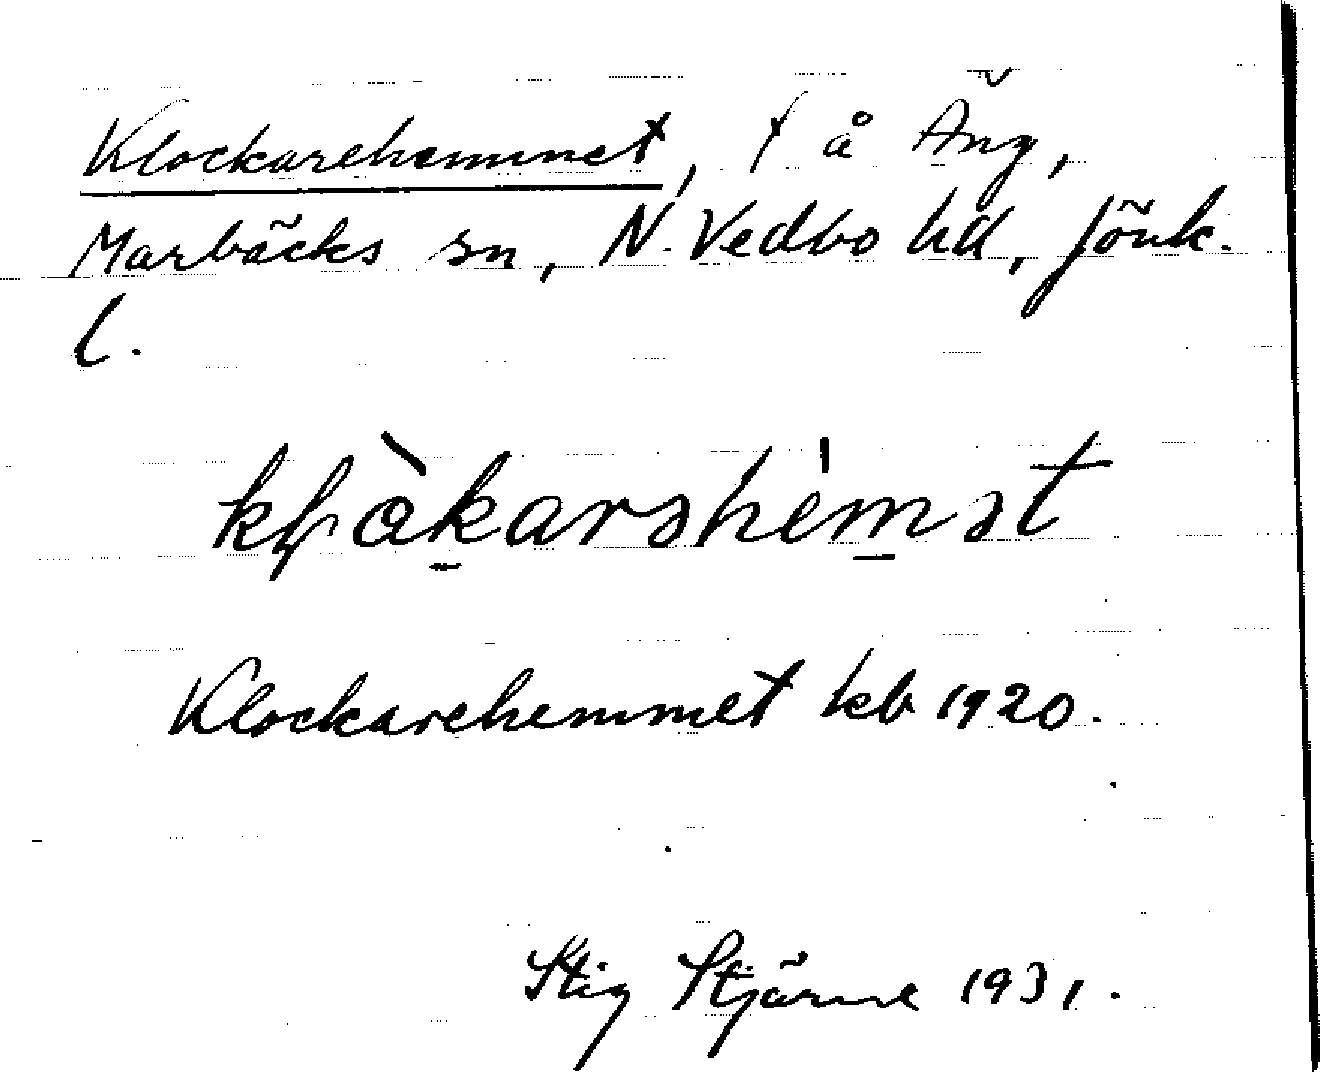 Klockarehemmet, t å Äng,
Marbäcks sn, N. Vedbo hd, Jönk.
l.
kɭàkarəhémət
Klockarehemmet kb 1920.
Stig Stjärne 1931.